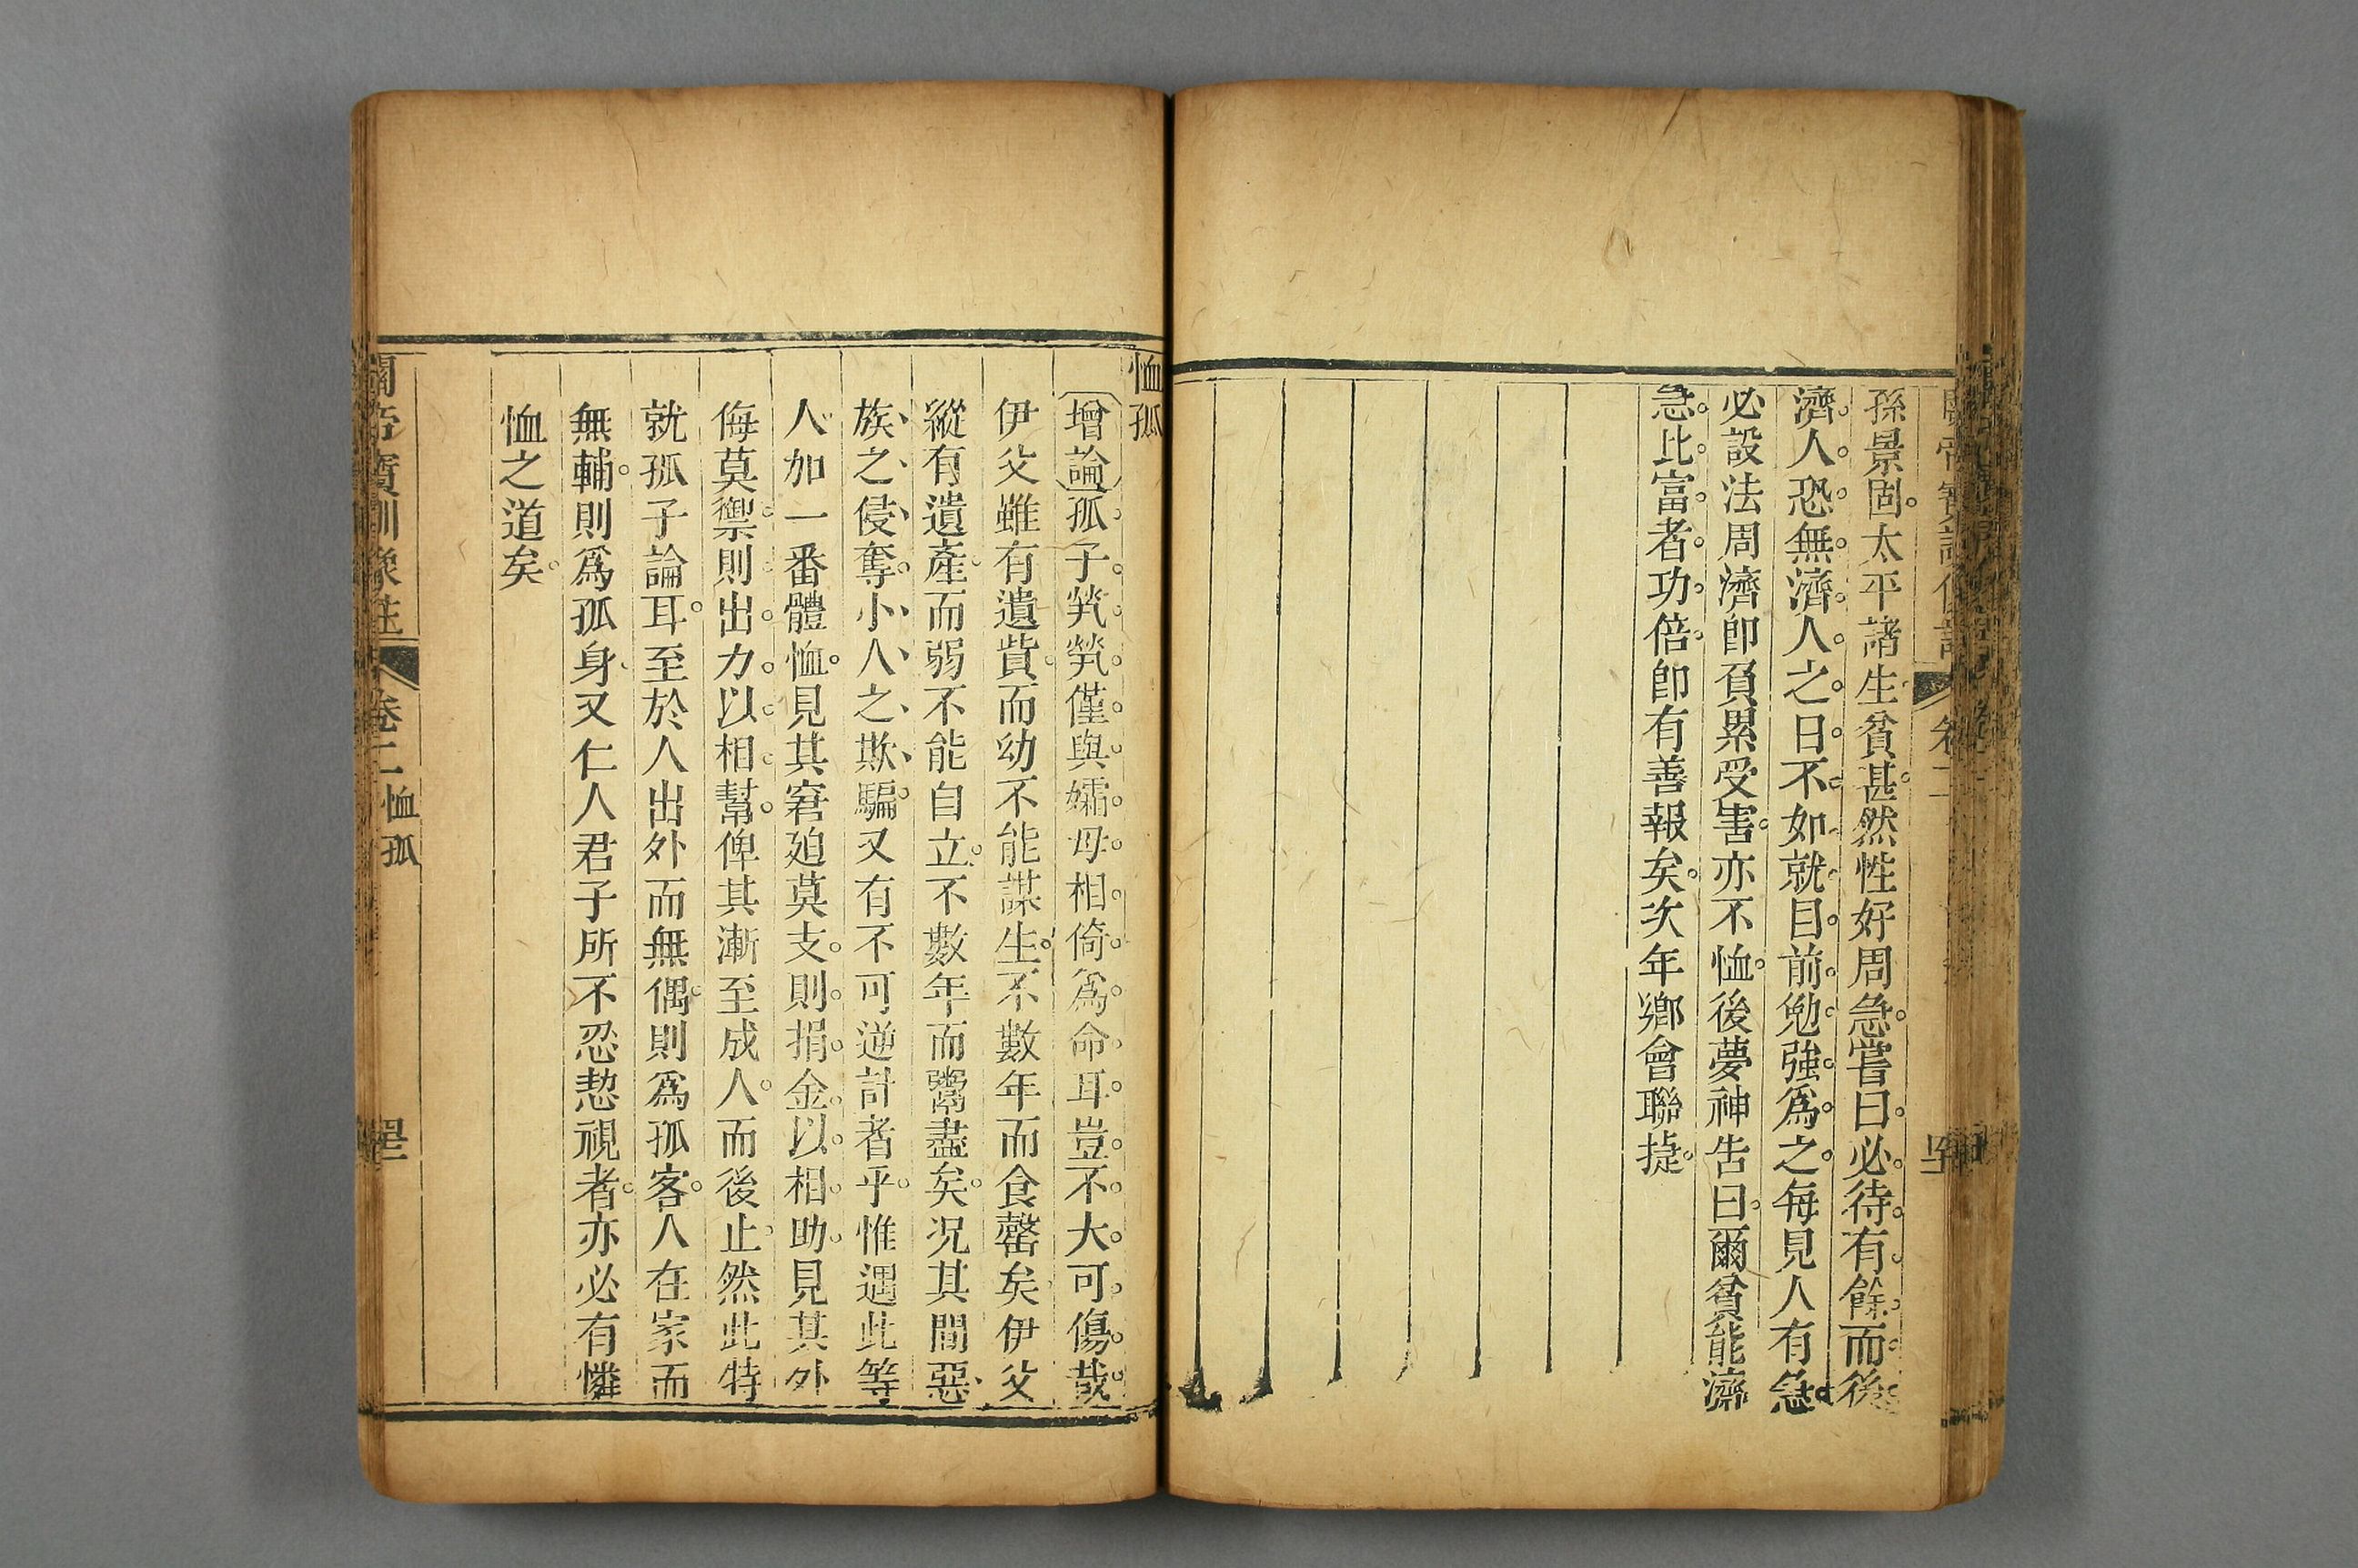 孫景固太平諸生貧甚然性好周急嘗曰必待有餘而後
濟人恐無濟人之日不如就目前勉強為之每見人有急
必設法周濟卽負累受害亦不恤後夢神告曰爾貧能濟
急比富者功倍卽有善報矣次年鄉會聯捷
恤孤
增論孤子煢煢僅與孀母相倚爲命耳豈不大可傷哉
伊父雖有遺貲而幼不能謀生不數年而食罄矣伊父
縱有遺產而弱不能自立不數年而鬻盡矣况其間惡
族之侵奪小人之欺騙又有不可逆計者乎惟遇此等
人加一番體恤見其窘廹莫支則捐金以相助見其外
侮莫禦則出力以相幫俾其漸至成人而後止然此特
就孤子論耳至於人出外而無偶則爲孤客人在家而
無輔則爲孤身又仁人君子所不忍恝視者亦必有憐
恤之道矣
關帝寶訓像註 卷二 恤孤